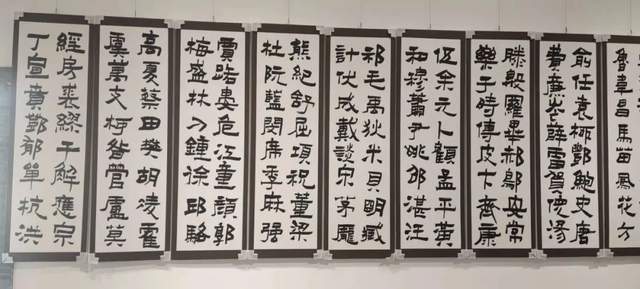 魯韋昌馬苗鳳花方
俞任袁柳酆鮑史唐
費廉岑薛雷賀倪湯
滕殷羅畢郝鄔安常
樂于時傅皮卞齊康
伍余元卜顧孟平黃
和穆蕭尹姚邵湛汪
祁毛禹狄米貝明臧
計伏成戴談宋茅龐
熊紀舒屈項祝董梁
杜阮藍閔席季麻强
賈路婁危江童顏郭
梅盛林刁鍾徐邱駱
高夏蔡田樊胡凌霍
虞萬支柯昝管盧莫
經房裘繆干解應宗
丁宣賁鄧郁單杭洪